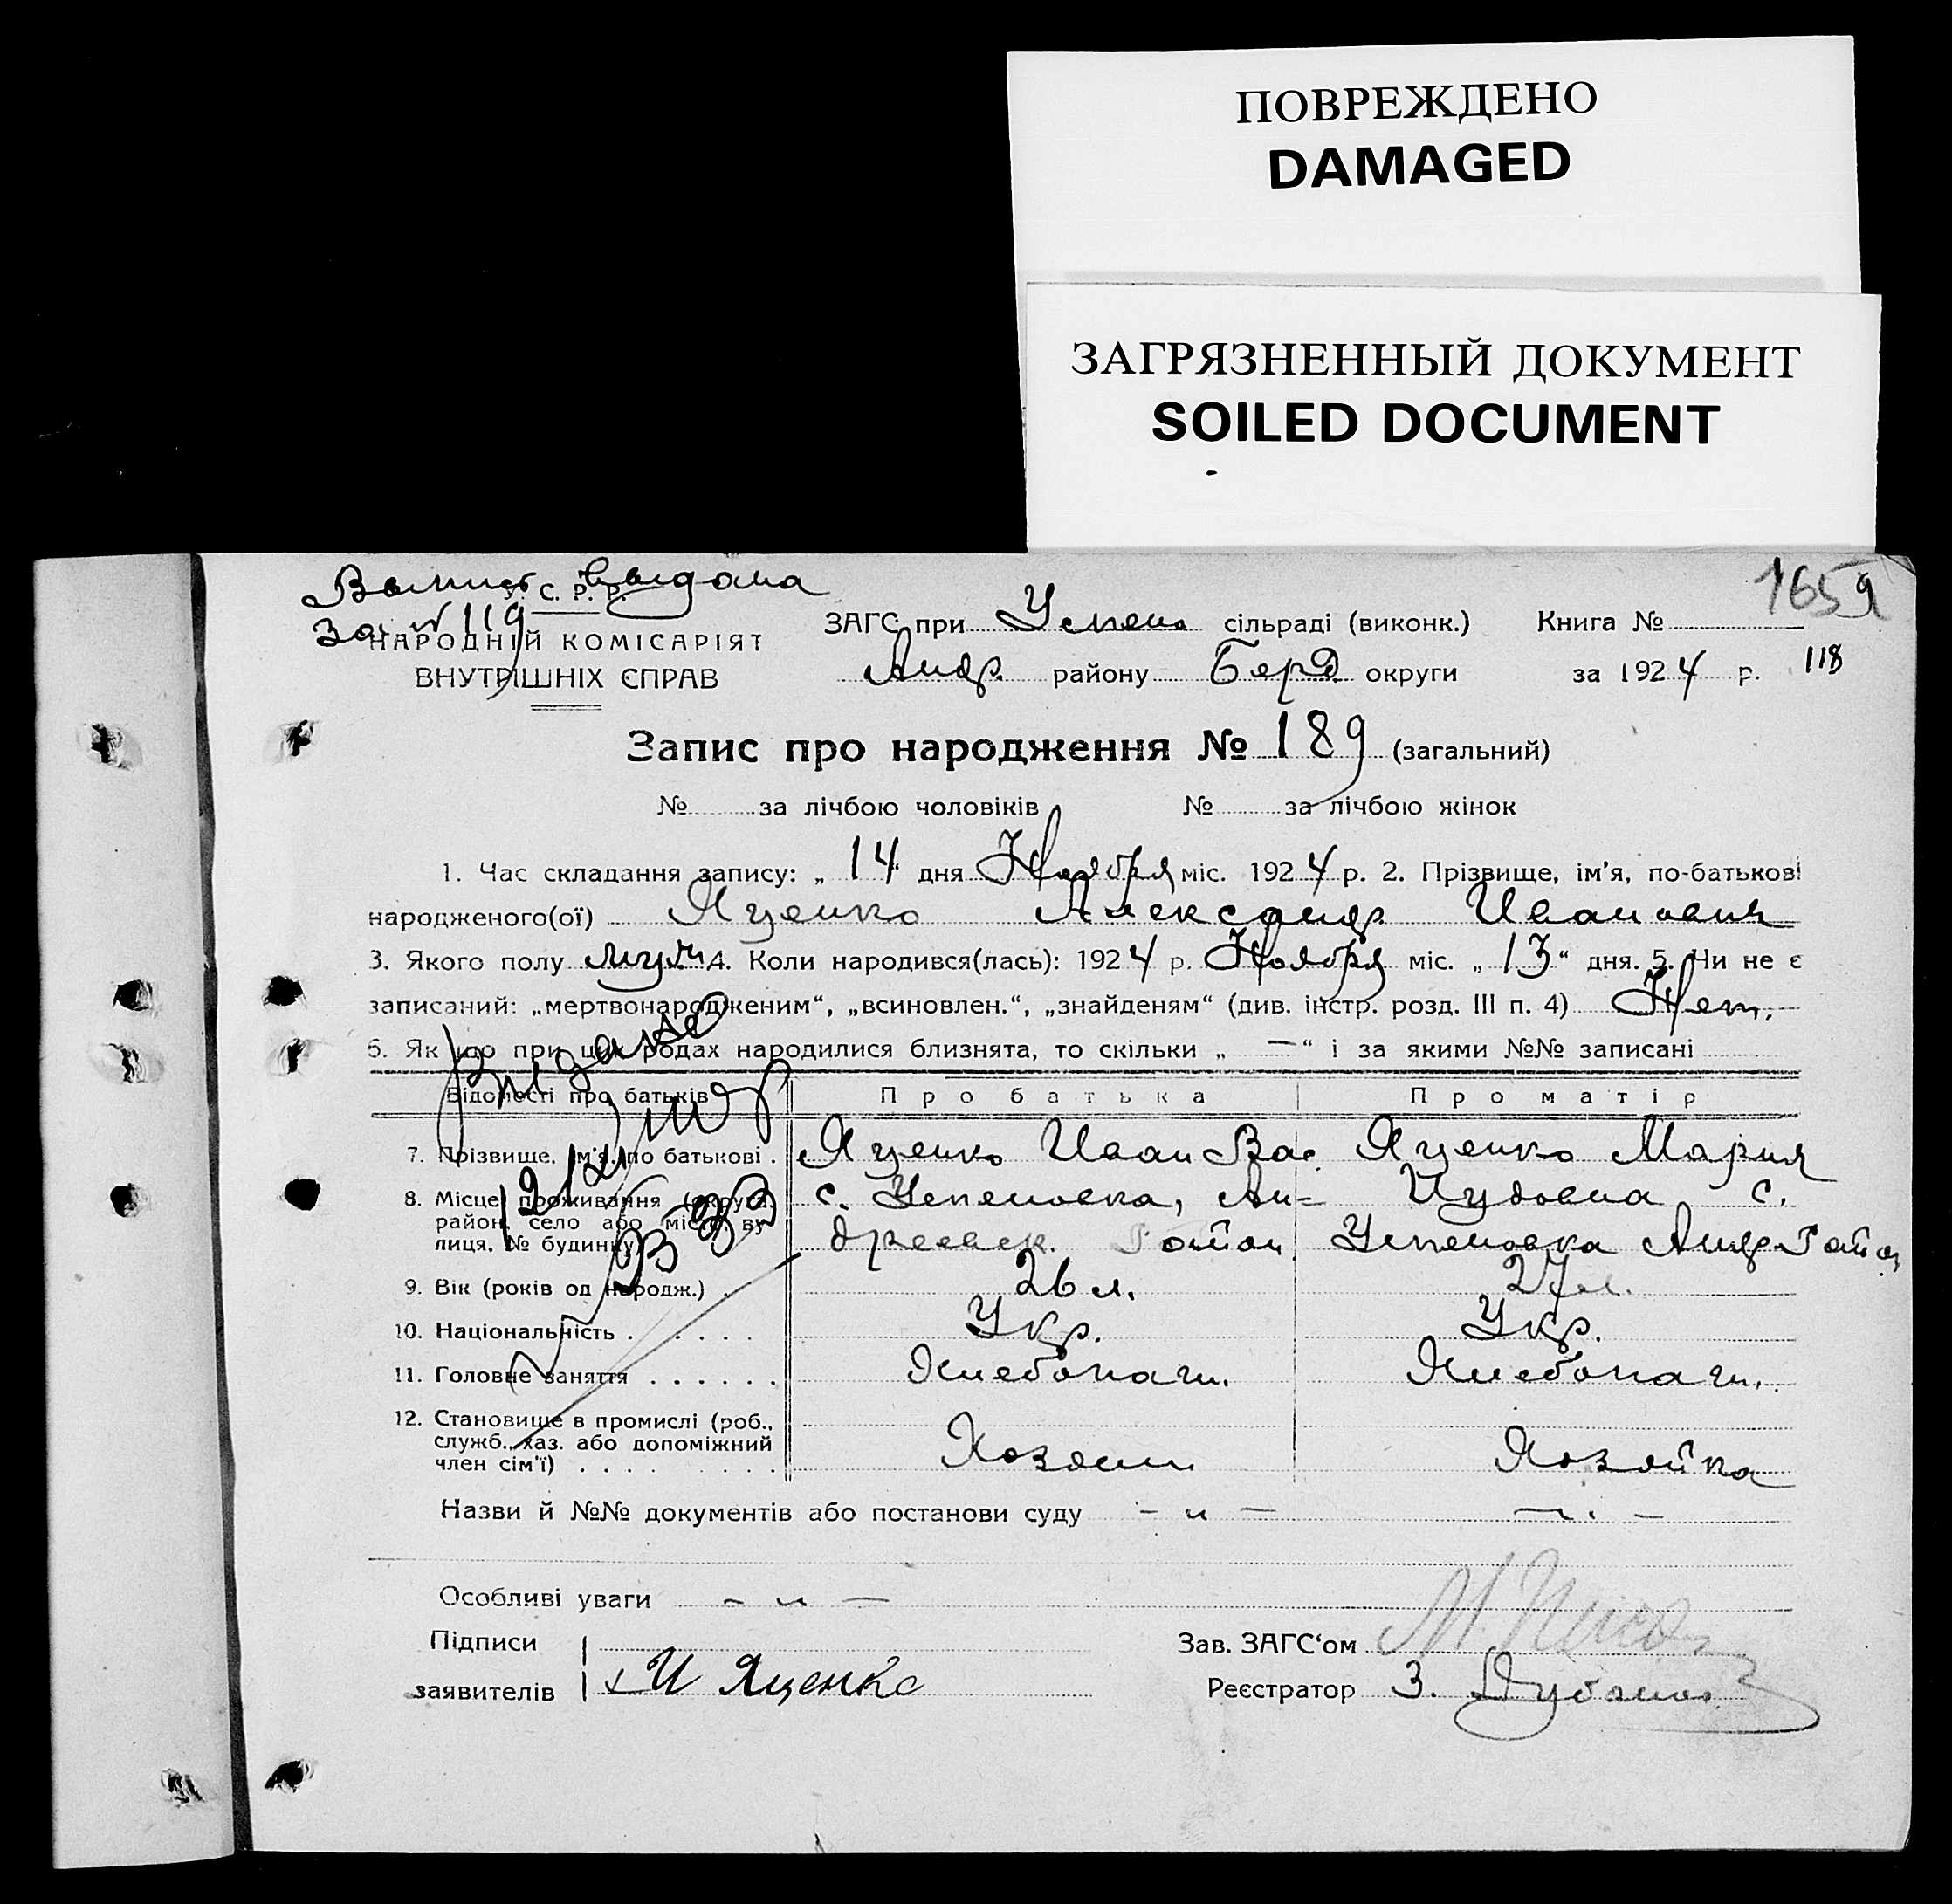 ПОВРЕЖДЕНО
DAMAGED
ЗАГРЯЗНЕННЫЙ ДОКУМЕНТ
SOILED DOCUMENT
выдана
У. С. Р. Р.
За № 119
НАРОДНІЙ КОМІСАРІЯТ
ВНУТРІШНІХ СПРАВ
ЗАГС при Успен. сільраді (виконк.) Книга №
165
Андр. району Берд. округи за 1924 р. 118
Запис про народження № 189 (загальний)
№ за лічбою чоловіків № за лічбою жінок
1. Час складання запису: „ 14 " дня Ноября міс. 1924 р. 2. Прізвище, ім'я, по-батькові
народженого(ої) Яценко Александр Иванович
3. Якого полу муж. 4. Коли народився(лась): 1924 р. Ноября міс. „ 13 “ дня. 5. Чи не є
записаний: „мертвонародженим“, „всиновлен.“, „знайденям“ (див. інстр. розд. III п. 4) Нет.
6. Як що при цих родах народилися близнята, то скільки „ — “ і за якими №№ записані
Відомості про батьків Про батька Про матір
7. Прізвище, ім'я, по батькові . Яценко Иван Вас. Яценко Мария
8. Місце проживання (округа, с. Успеновка, Ан= с.
район, село або місто, ву- дреевск. Район Успеновка Андр. Район
лиця, № будинку)
9. Вік (років од народж.) . 26 л. 27 л.
10. Національність . . . . . Укр. Укр.
11. Головне заняття . . . . . . Хлебопаш. Хлебопаш.
12. Становище в промислі (роб.,
служб., хаз. або допоміжний Хозяин Хозяйка
член сім'ї) . . . . . . . .
Назви й №№ документів або постанови суду — „ — — „ —
Особливі уваги — „ —
Підписи Зав. ЗАГС‘ом
заявителів И Яценко Реєстратор З.